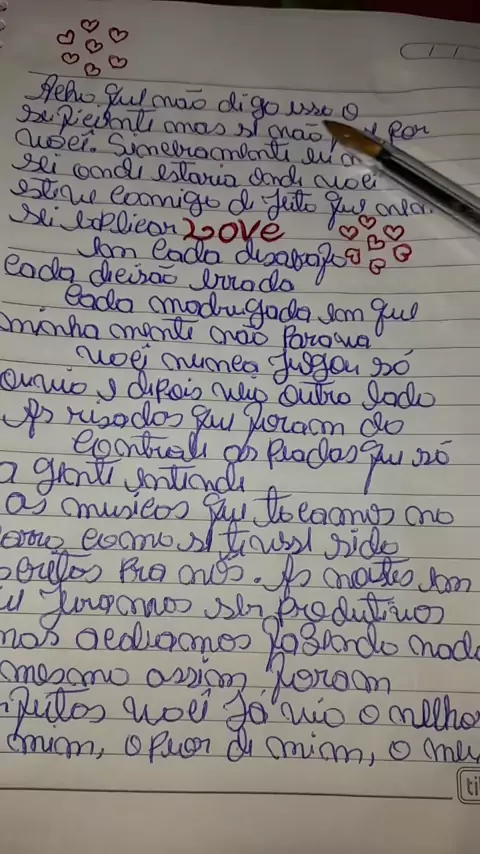 Acho que não digo isso o
suficiente mas se não por
você. Sinceramente
sei onde estaria onde você
estive comigo di jeito que
sei explicar LOVE
Em cada desabafo
cada dicisão errada
Cada madrugada em que
minha mente não parava
você nunca julgou só
ouviu e depois outro lado
As risadas que foram do
controle as piadas que só
a gente entende
as musicas que tocamos no
carro como se tivesse sido
pra nós. As noites em
juramos ser produtivos
mas acabamos fazendo nada
mesmo assim foram
você já viu o melhor
mim, o pior di mim, o meu